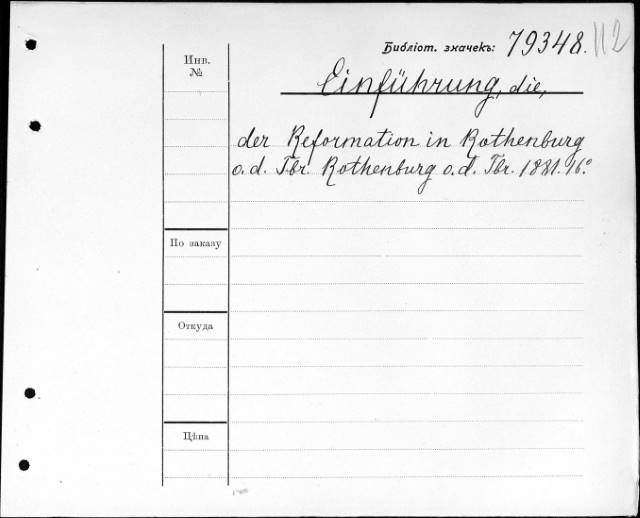 Библіот. значекъ: 79348. 112
Инв.
№
Einführung, die,
der Reformation in Rothenburg
o. d. Tbr. Rothenburg o. d. Tbr. 1881. 16°.
По заказу
Откуда
Цѣна